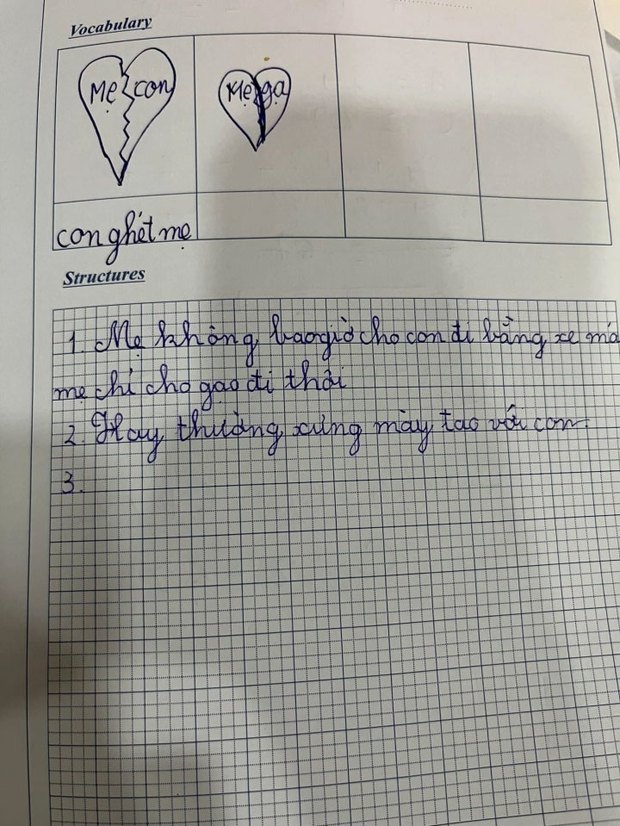 Vocabulary
Mẹ con
Mẹ gạ
con ghét mẹ
Structures
1. Mẹ không bao giờ cho con đi bằng xe má
mẹ chỉ cho gạo đi thôi
2. Hay thường xưng mày tao với con.
3.